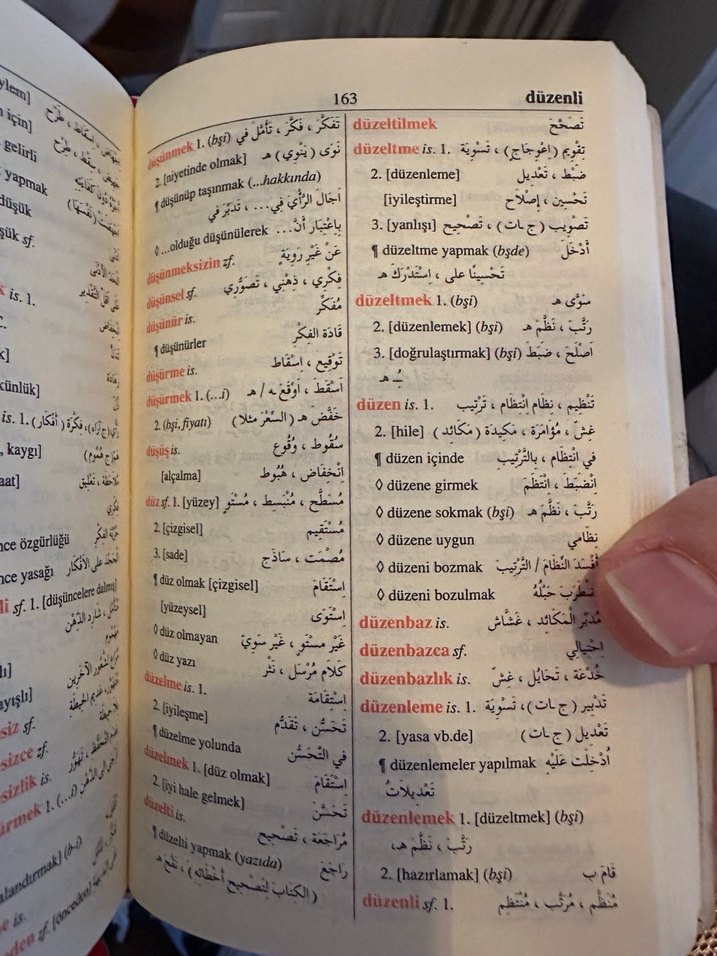 ylem]
için]
gelirli
yapmak
düşük
şük sf.
is. 1.
künlük]
is. 1.
, kaygı]
aat]
nce özgürlüğü
nce yasağı
li sf. 1. [düşüncelere dalmış]
ayışlı]
siz sf.
sizce zf.
sizlik is.
ürmek 1. (...i)
alandırmak] (b-i)
eden zf. [önceden]
163
düşünmek 1. (bşi) تَفَكَّرَ ، فَكَّرَ ، تَأَمَّلَ في
2. [niyetinde olmak] نَوَى (يَنْوِي) هـ
¶ düşünüp taşınmak (...hakkında)
أَجَالَ الرَّأْيَ فِي... ، تَدَبَّرَ في
◊ ...olduğu düşünülerek بِاعْتِبَارِ أَنَّ...
düşünmeksizin zf. عَنْ غَيْرِ رَوِيَّةٍ
düşünsel sf. فِكْرِي ، ذِهْنِي ، تَصَوُّرِي
düşünür is. مُفَكِّرٌ
¶ düşünürler قَادَة الفِكْرِ
düşürme is. تَوْقِيع ، إسْقَاط
düşürmek 1. (...i) أَسْقَطَ ، أَوْقَعَ ه / هـ
2. (bşi, fiyatı) خَفَّضَ هـ (السِّعْرَ مثلا)
düşüş is. سُقُوط ، وُقُوع
[alçalma] اِنْخِفَاض ، هُبُوط
düz sf. 1. [yüzey] مُسَطَّح ، مُنْبَسِط ، مُسْتَوٍ
2. [çizgisel] مُسْتَقِيم
3. [sade] مُصْمَت ، سَاذَج
¶ düz olmak [çizgisel] اِسْتَقَامَ
[yüzeysel] اِسْتَوَى
◊ düz olmayan غَيْر مستَوٍ ، غَيْر سَوِيّ
◊ düz yazı كَلَام مُرْسَل ، نَثْر
düzelme is. 1. اِسْتِقَامَة
2. [iyileşme] تَحَسُّن ، تَقَدُّم
¶ düzelme yolunda في التَّحَسُّنِ
düzelmek 1. [düz olmak] اِسْتَقَامَ
2. [iyi hale gelmek] تَحَسَّنَ
düzelti is. مُرَاجَعَة ، تَصْحِيح
¶ düzelti yapmak (yazıda) رَاجَعَ
(الكتابَ لِتَصْحِيحِ أَخْطَائِهِ) ، نَقَّحَ هـ
düzenli
düzeltilmek تَصَحَّحَ
düzeltme is. 1. تَقْوِيم (اِعْوِجَاج) ، تَسْوِيَة
2. [düzenleme] ضَبْط ، تَعْدِيل
[iyileştirme] تَحْسِين ، إصْلَاح
3. [yanlışı] تَصْوِيب (ج ـات) ، تَصْحِيح
¶ düzeltme yapmak (bşde) أَدْخَلَ
تَحْسِينًا على ، اِسْتَدْرَكَ هـ
düzeltmek 1. (bşi) سَوَّى هـ
2. [düzenlemek] (bşi) رَتَّبَ ، نَظَّمَ هـ
3. [doğrulaştırmak] (bşi) أَصْلَحَ ، ضَبَطَ
ـُـ هـ
düzen is. 1. تَنْظِيم ، نِظَام اِنْتِظَام ، تَرْتِيب
2. [hile] غِشّ ، مُؤَامَرَة ، مَكِيدَة (مَكَائِد)
¶ düzen içinde في اِنْتِظَام ، بِالتَّرْتِيبِ
◊ düzene girmek اِنْضَبَطَ ، اِنْتَظَمَ
◊ düzene sokmak (bşi) رَتَّبَ ، نَظَّمَ هـ
◊ düzene uygun نِظَامِي
◊ düzeni bozmak أَفْسَدَ النِّظَامَ / التَّرْتِيبَ
◊ düzeni bozulmak حَبْلُهُ
düzenbaz is. مُدَبِّر المَكَائِد ، غَشَّاش
düzenbazca sf. اِحْتِيَالِي
düzenbazlık is. خُدْعَة ، تَحَايُل ، غِشّ
düzenleme is. 1. تَدْبِير (ج ـات) ، تَسْوِيَة
2. [yasa vb.de] تَعْدِيل (ج ـات)
¶ düzenlemeler yapılmak أُدْخِلَت عَلَيْهِ
تَعْدِيلَاتٌ
düzenlemek 1. [düzeltmek] (bşi)
رَتَّبَ ، نَظَّمَ هـ،
2. [hazırlamak] (bşi) قَامَ ب
düzenli sf. 1. مُنَظَّم ، مُرَتَّب ، مُنْتَظِم